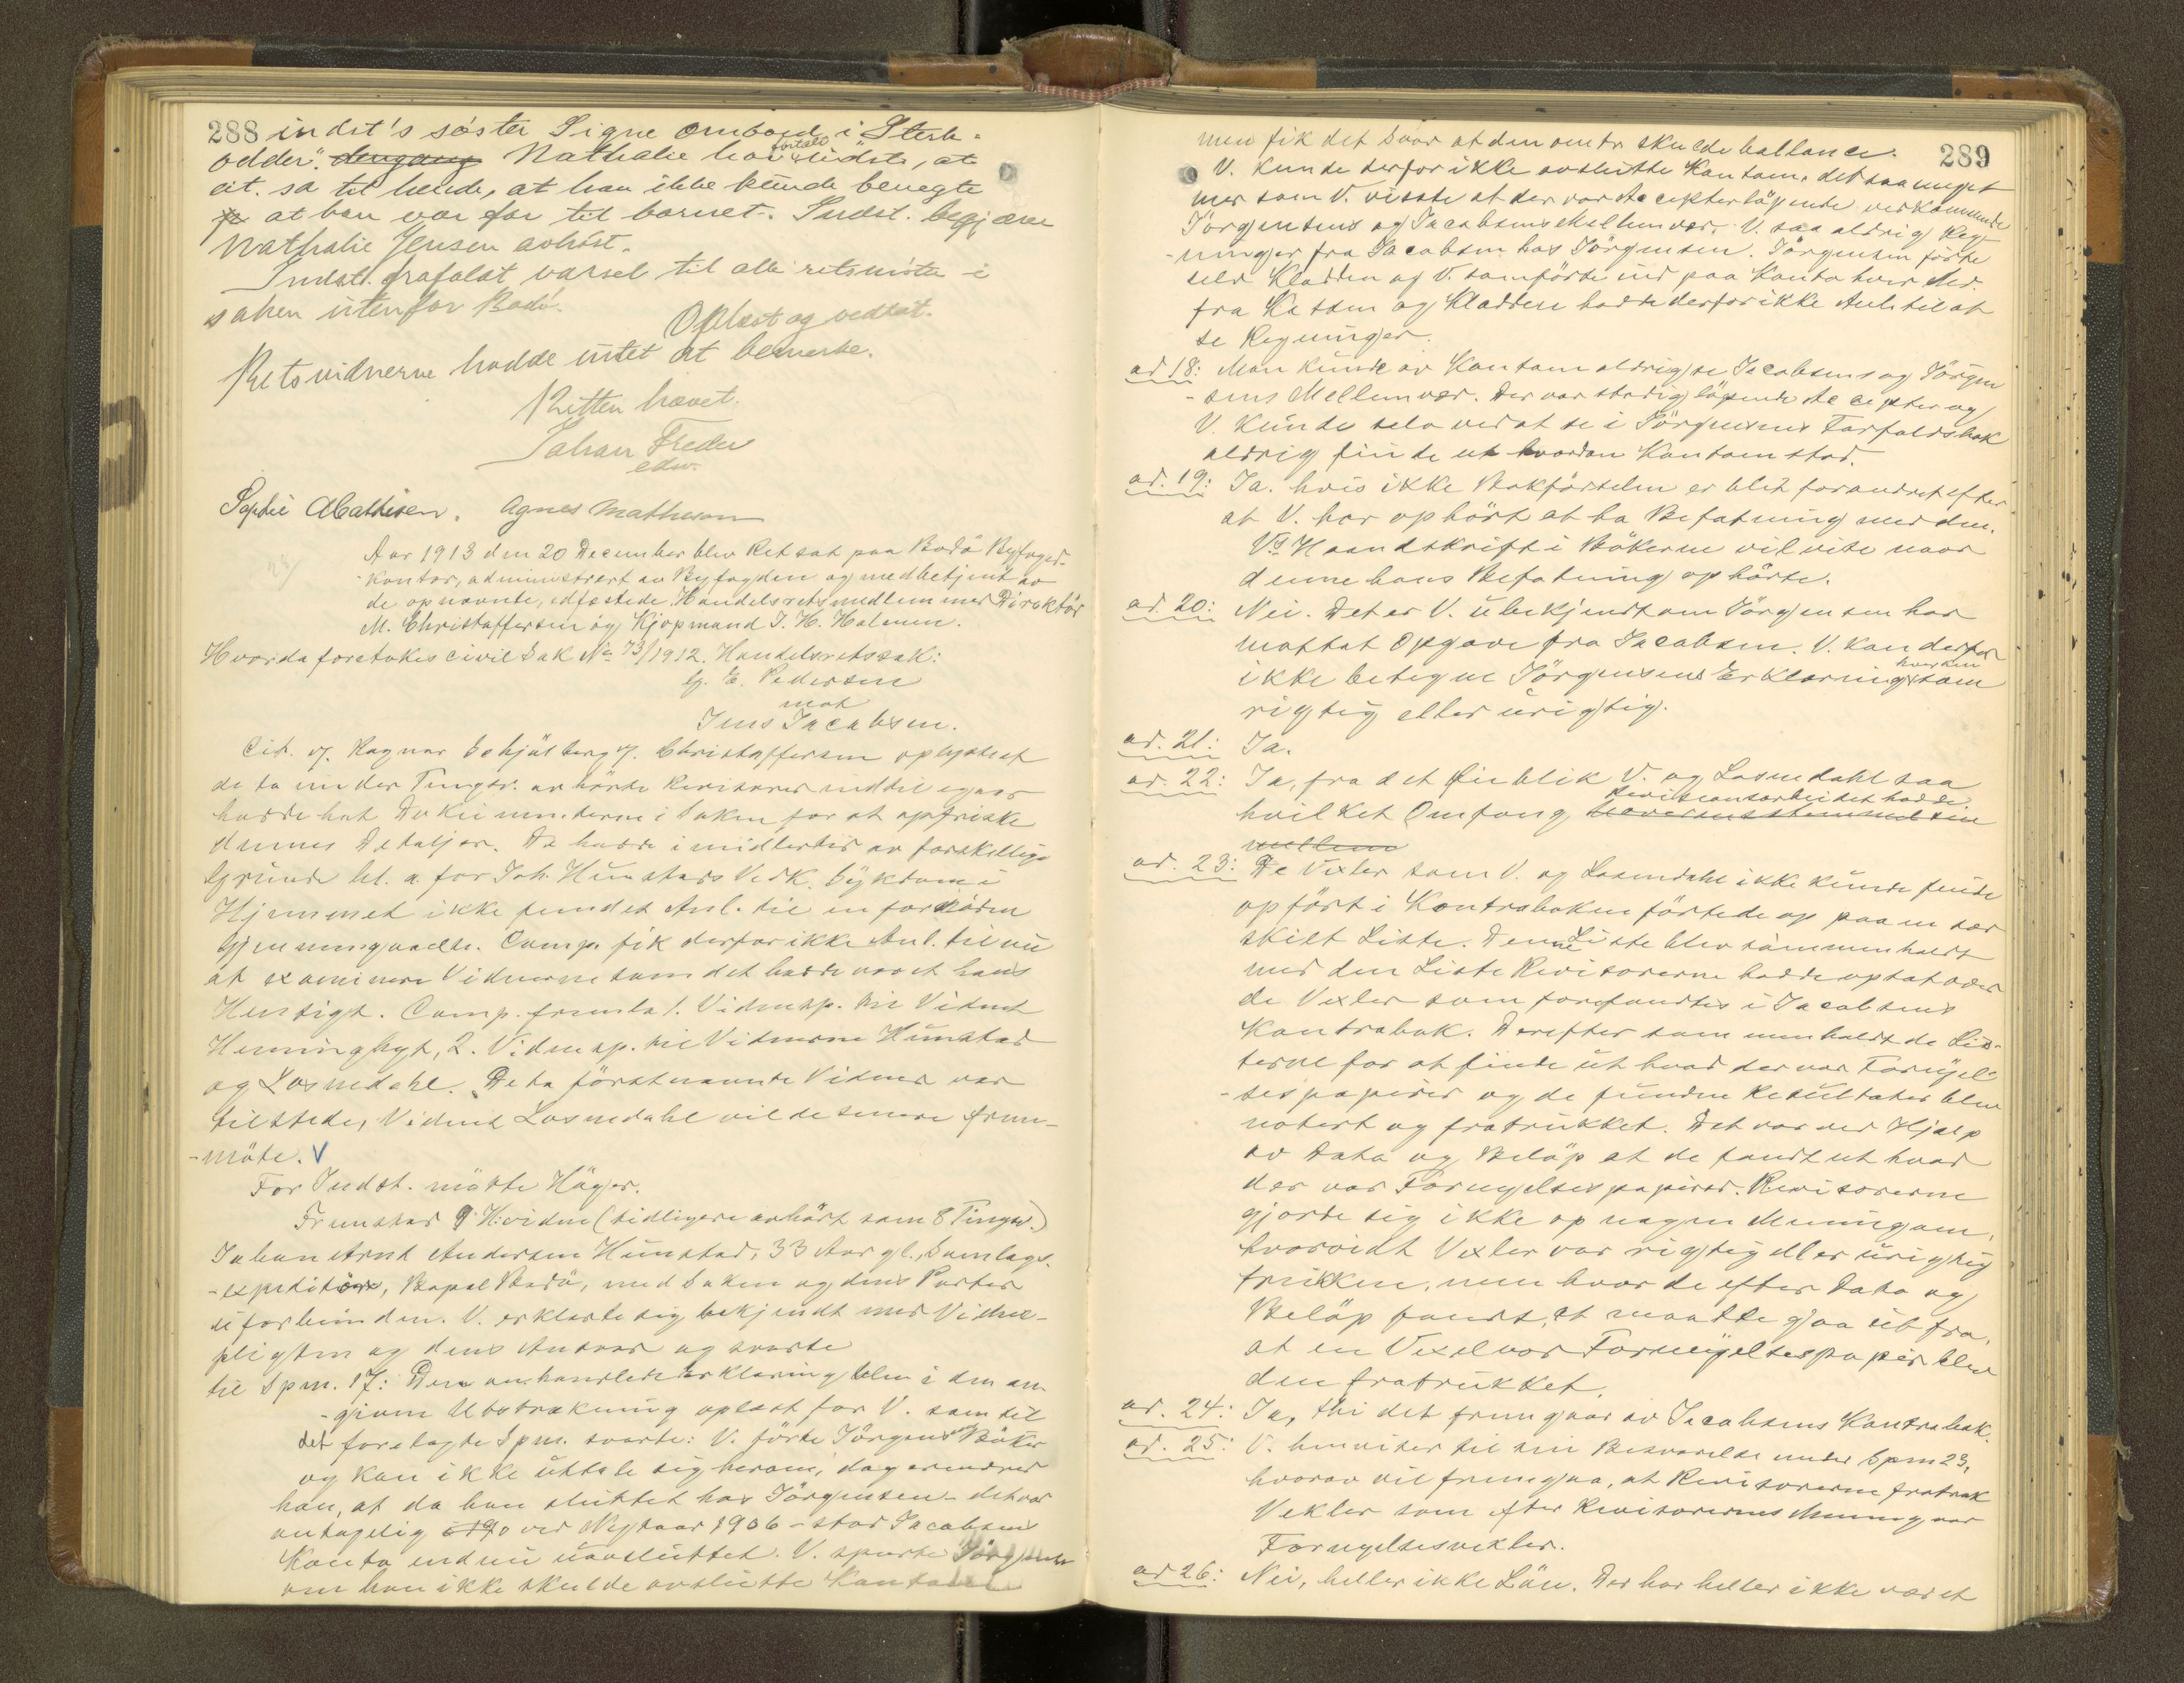 288 indst's søster Signe ombord i Sterk-
odder". dengang Nathalie har fortalt indst., at
cit. sa til hende, at han ikke kunde benegte
at han var far til barnet. Indst. begjærer
Nathalie Jensen avhørt.
Indst. frafaldt varsel til alle retsmøter i
saken utenfor Bodø.
Oplæst og vedtat.
Retsvidnerne hadde intet at bemerke.
Retten hævet.
Johan Freder
edsv.
Sophie Mathisen. Agnes Mathisen
Aar 1913 den 20 December blev Ret sat paa Bodø Byfoged-
kontor, administrert av Byfogden og medbetjent av
de opnævnte, edfæstede Handelsretsmedlemmer Direktør
M. Christoffersen og Kjøpmand J. H. Holmen.
Hvorda foretokes civil Sak No 73/1912. Handelsretssak:
E. Pedersen
mot
Jens Jacobsen.
Cit. v. Ragnar Schjølberg v. Christoffersen oplyste at
de to under Tingsv. avhørte Revisorer indtil igaar
hadde hat Dokumenterne i Saken for at opfriske
dennes Detaljer. De hadde imidlertid av forskellige
Grunde bl. a. for Joh. Hunstads Vedk. Sykdom i
Hjemmet ikke fundet Anl. til en fornøden
Gjennemgaaelse. Comp. fik derfor ikke Anl. til nu
at examinere Vidnerne som det hadde været hans
Hensigt. Comp. fremla 1. Vidnesp. til Vidnet
Hemminghyt, 2. Vidnesp. til Vidnerne Hunstad
og Losnedahl. De to førstnævnte Vidner var
tilstede, Vidnet Losnedahl vilde senere frem-
-møte. V
For Indst. møtte Høyer.
Fremstod 9. H.vidne (tidligere avhørt som 8 Tingsv.)
Johan Arnt Andersen Hunstad, 33 Aar gl., Samlags-
-expeditør, Bopæl Bodø, med Saken og dens Parter
uforbunden. V. erklærte sig bekjendt med Vidne-
pligten og dens Ansvar og svarte
til Spm. 17: Den omhandlede Erklæring blev i den an-
-givne Utstrækning oplæst for V. som til
det forelagte Spm. svarte: V. førte Jörgensens Bøker
og kan ikke uttale sig herom, dog erindrer
han, at da han sluttet hos Jörgensen - det var
antagelig i 190 ved Nytaar 1906 - stod Jacobsens
Konto endnu uavsluttet. V. spurte Jörgensen
om han ikke skulde avslutte Kontoen
289
men fik det Svar at den omtr. skulde ballance.
V. kunde derfor ikke avslutte Kontoen, det saa meget
mer som V. visste at der var Accepter løpende vedkommende
Jörgensens og Jacobsens Mellemvær. V. saa aldrig Reg-
-ninger fra Jacobsen hos Jörgensen. Jörgensen førte
selv Kladden og V. somførte ind paa Konto hver Md.
fra Kassen og Kladden hadde derfor ikke Anl. til at
se Regninger.
ad 18: Man kunde av Kontoen aldrig se Jacobsens og Jörgen
-sens Mellemvær. Der var stadig løpende Accepter og
V. kunde selv ved at se i Jörgensens Forfaldsbok
aldrig finde ut hvordan Kontoen stod.
ad. 19: Ja. hvis ikke Bokførselen er blit forandret efter
at V. har ophørt at ha Befatning med den.
Vs Haandskrift i Bøkerne vil vise naar
denne hans Befatning ophørte.
ad. 20: Nei. Det er V. ubekjendt om Jörgensen har
mottat Opgave fra Jacobsen. V. kan derfor
ikke betegne Jörgensens Erklæring hverken som
rigtig eller urigtig.
ad. 21: Ja.
ad. 22: Ja, fra det Øieblik V. og Losnedahl saa
hvilket Omfang Revisionsarbeidet hadde.
mellem
ad. 23: De Vexler som V. og Losnedahl ikke kunde finde
opført i Kontraboken førtes op paa en sær
skilt Liste. Denne Liste blev sammenholdt
med den Liste Revisorerne hadde optat over
de Vexler som forefandtes i Jacobsens
Kontrabok. Derefter sammenholdt de Lis-
terne for at finde ut hvad der var Fornyel-
-sespapirer og de fundne Resultater blev
notert og fratrukket. Det var ved Hjælp
av Dato og Beløp at de fandt ut hvad
der var Fornyelsespapirer. Revisorerne
gjorde sig ikke op nogen Mening om,
hvorvidt Vexler var rigtig eller urigtig
trukken, men hvor de efter Dato og
Beløp fandt, at maatte gaa ut fra,
at en Vexel var Fornyelsespapir blev
den fratrukket.
ad. 24: Ja, thi det fremgaar av Jacobsens Kontrabok.
ad. 25: V. henviser til sin Besvarelse under Spm 23,
hvorav vil fremgaa, at Revisorerne fratrak
Vexler som efter Revisorernes Mening var
Fornyelsesvexler.
ad 26: Nei, heller ikke Lån. Der har heller ikke været